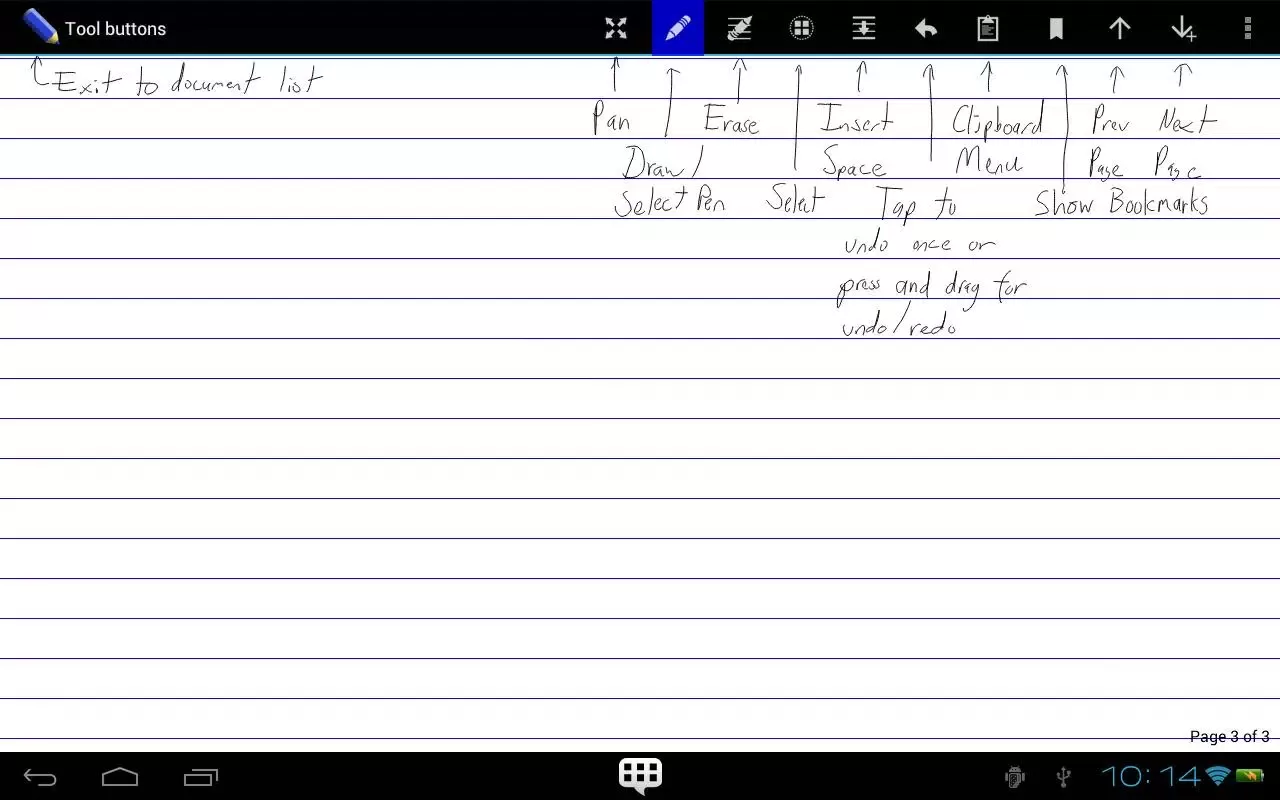 Tool buttons
Exit to document list
Pan
Draw/
Select Pen
Erase
Select
Insert
Space
Tap to
undo once or
press and drag for
undo/redo
Clipboard
Menu
Show Bookmarks
Prev
Page
Next
Page
Page 3 of 3
10:14